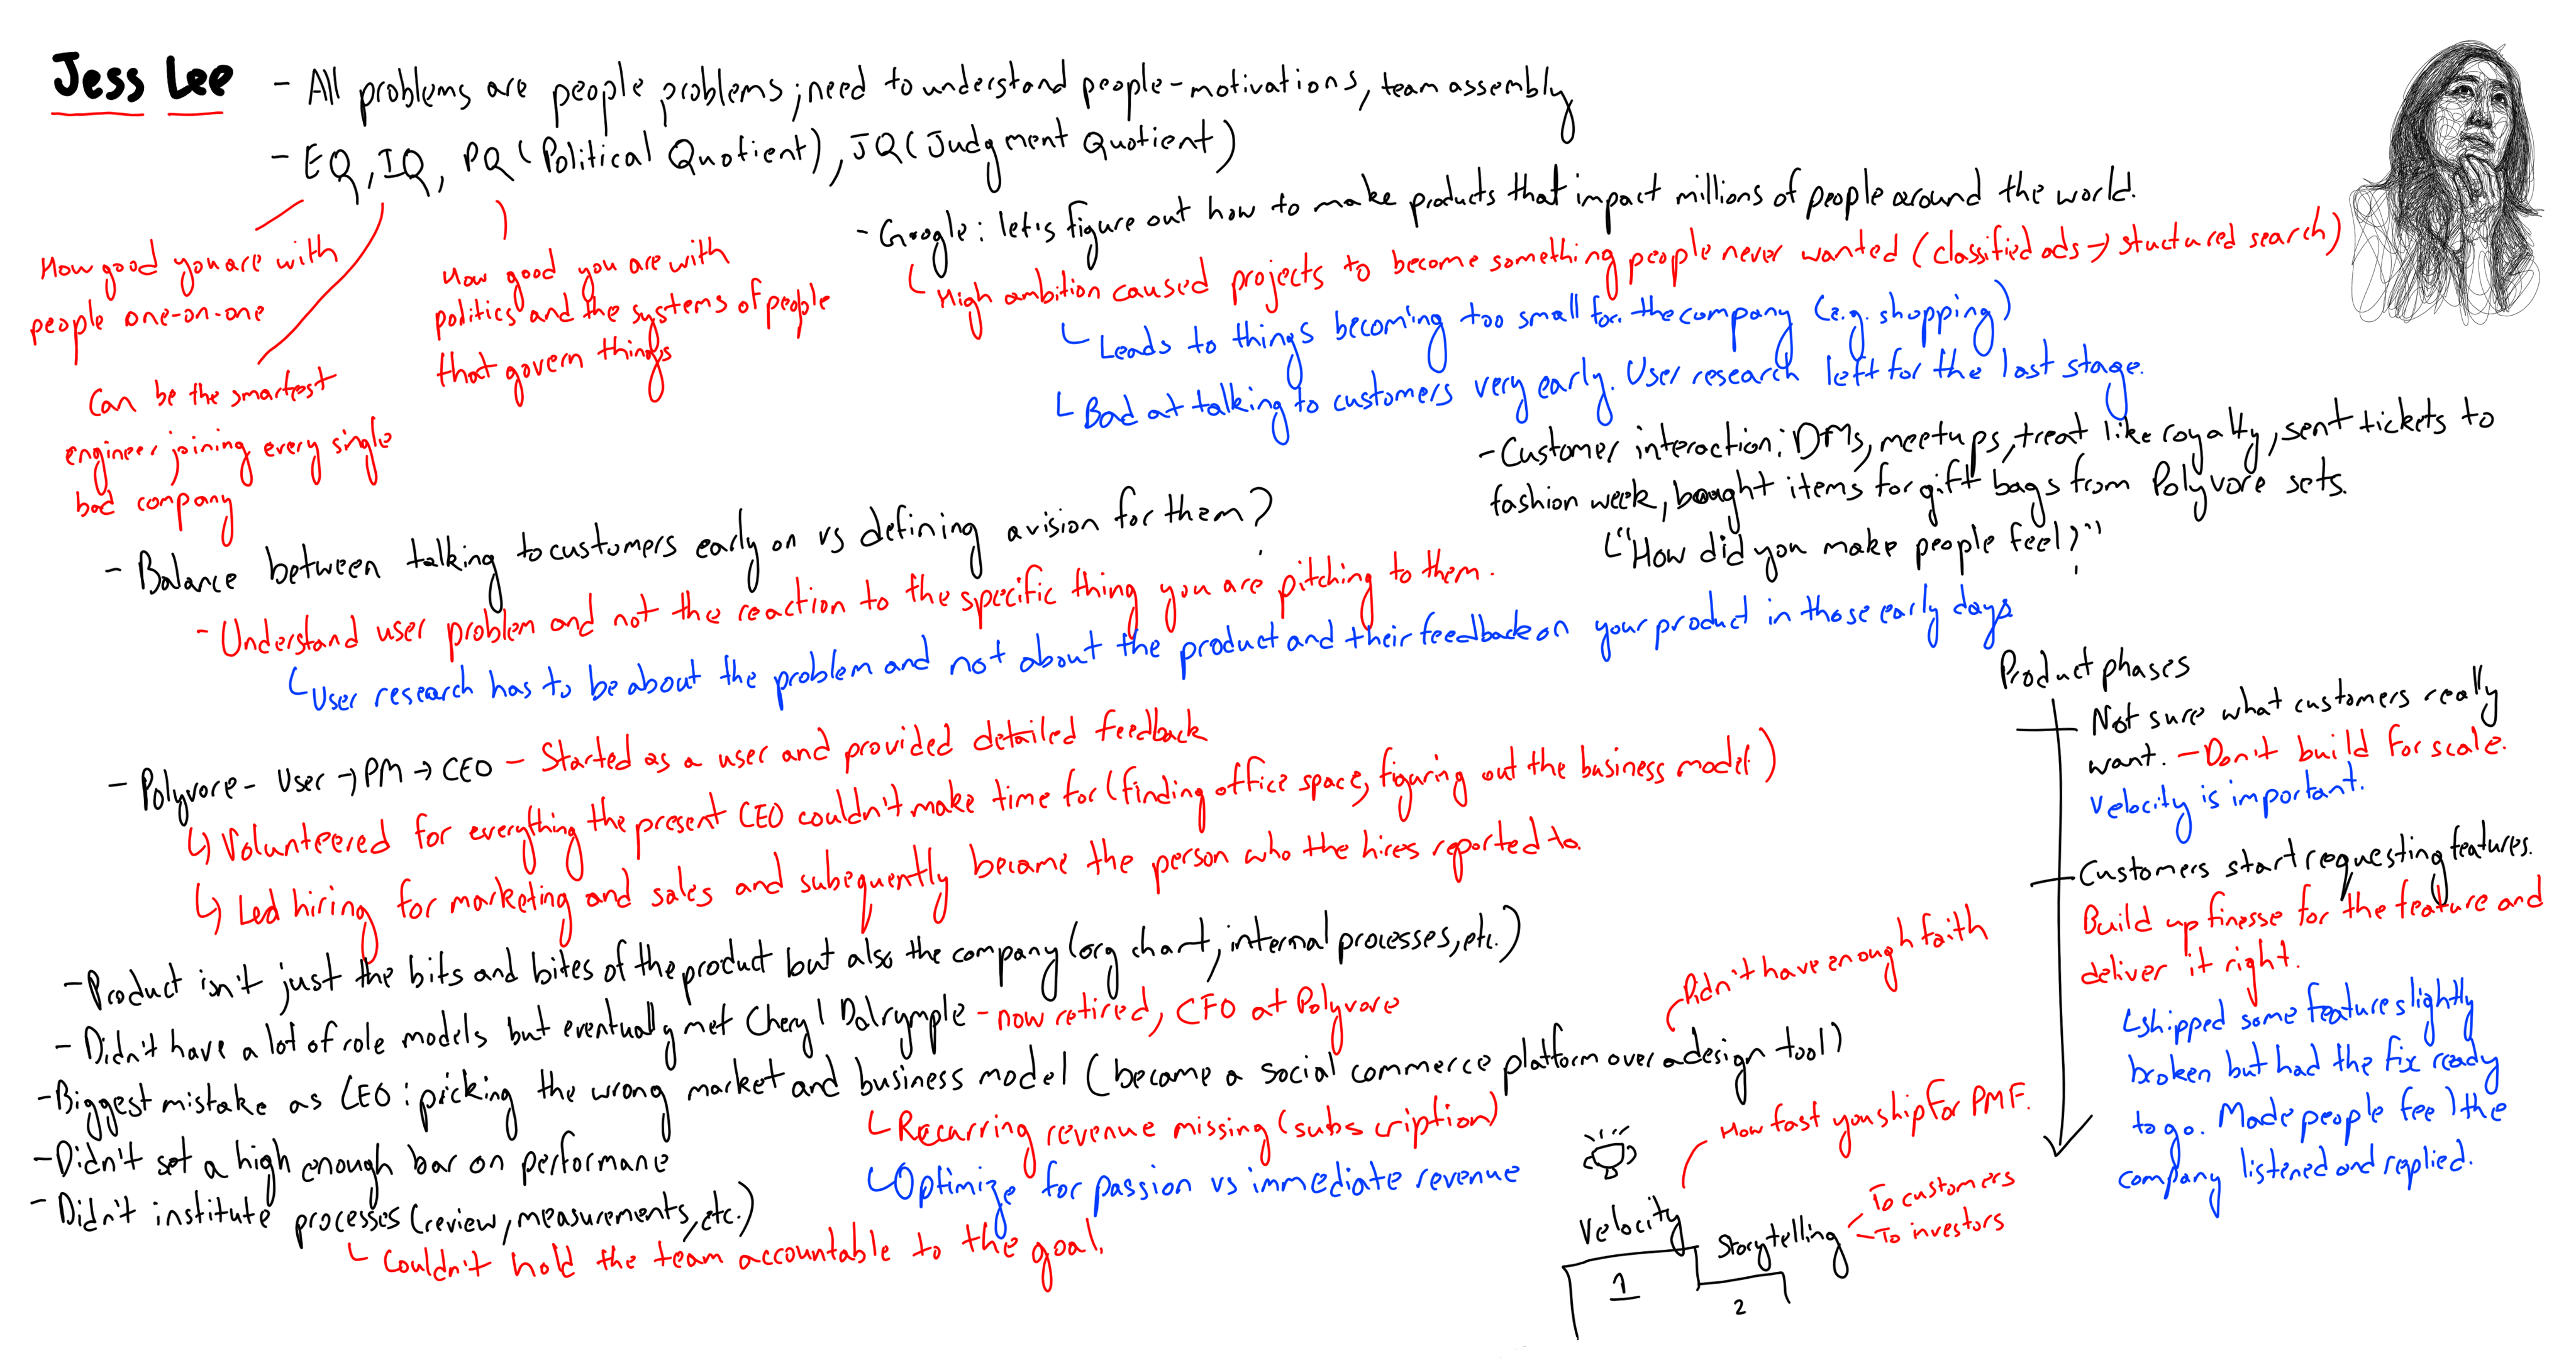 Jess Lee
- All problems are people problems; need to understand people-motivations, team assembly
- EQ, IQ, PQ (Political Quotient), JQ (Judgment Quotient)
How good you are with
people one-on-one
Can be the smartest
engineer joining every single
bad company
How good you are with
politics and the systems of people
that govern things
- Google: let's figure out how to make products that impact millions of people around the world.
High ambition caused projects to become something people never wanted (classified ads → stuctured search)
Leads to things becoming too small for the company (e.g. shopping)
Bad at talking to customers very early. User research left for the last stage.
- Customer interaction: DMs, meetups, treat like royalty, sent tickets to
fashion week, bought items for gift bags from Polyvore sets.
"How did you make people feel?"
- Balance between talking to customers early on vs defining a vision for them?
- Understand user problem and not the reaction to the specific thing you are pitching to them.
User research has to be about the problem and not about the product and their feedback on your product in those early days
- Polyvore - User → PM → CEO - Started as a user and provided detailed feedback
↳ Volunteered for everything the present CEO couldn't make time for (finding office space, figuring out the business model)
↳ Led hiring for marketing and sales and subequently became the person who the hires reported to.
- Product isn't just the bits and bites of the product but also the company (org chart, internal processes, etc.)
- Didn't have a lot of role models but eventually met Cheryl Dalrymple - now retired, CFO at Polyvore
- Biggest mistake as CEO: picking the wrong market and business model (became a social commerce platform over a design tool)
Didn't have enough faith
Recurring revenue missing (subscription)
Optimize for passion vs immediate revenue
- Didn't set a high enough bar on performane
- Didn't institute processes (review, measurements, etc.)
Couldn't hold the team accountable to the goal.
Product phases
Not sure what customers really
want. - Don't build for scale.
Velocity is important.
Customers start requesting features.
Build up finesse for the feature and
deliver it right.
shipped some feature slightly
broken but had the fix ready
to go. Made people feel the
company listened and replied.
How fast you ship for PMF.
Velocity
1
Storytelling
2
To customers
To investors